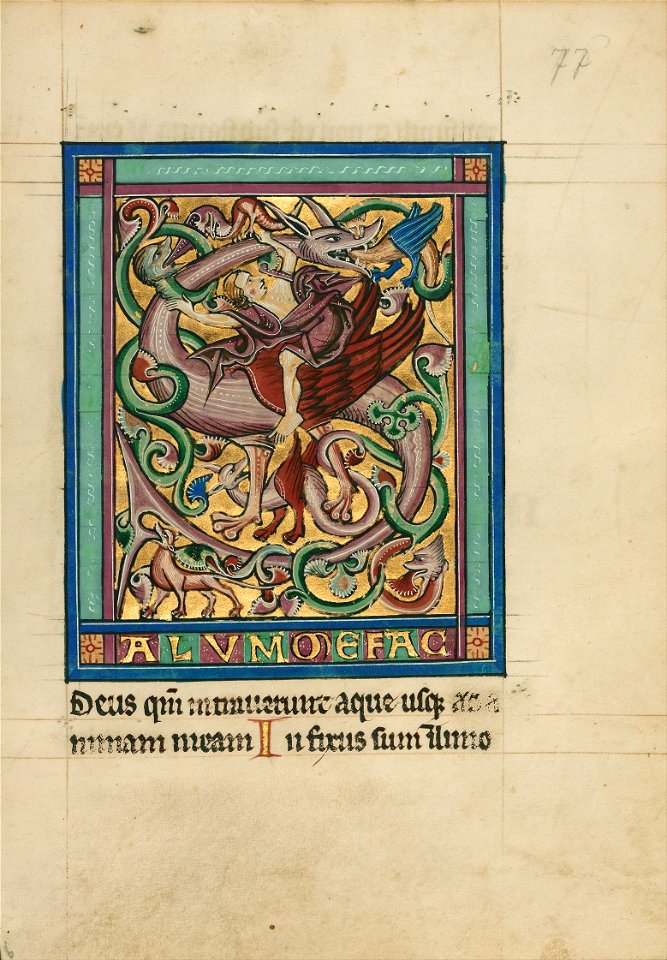 77
S
ALVMMEFAC
Deus qm̄ intrauerunt aque usqꝫ ad a
nimam meam In fixus sum ī limo